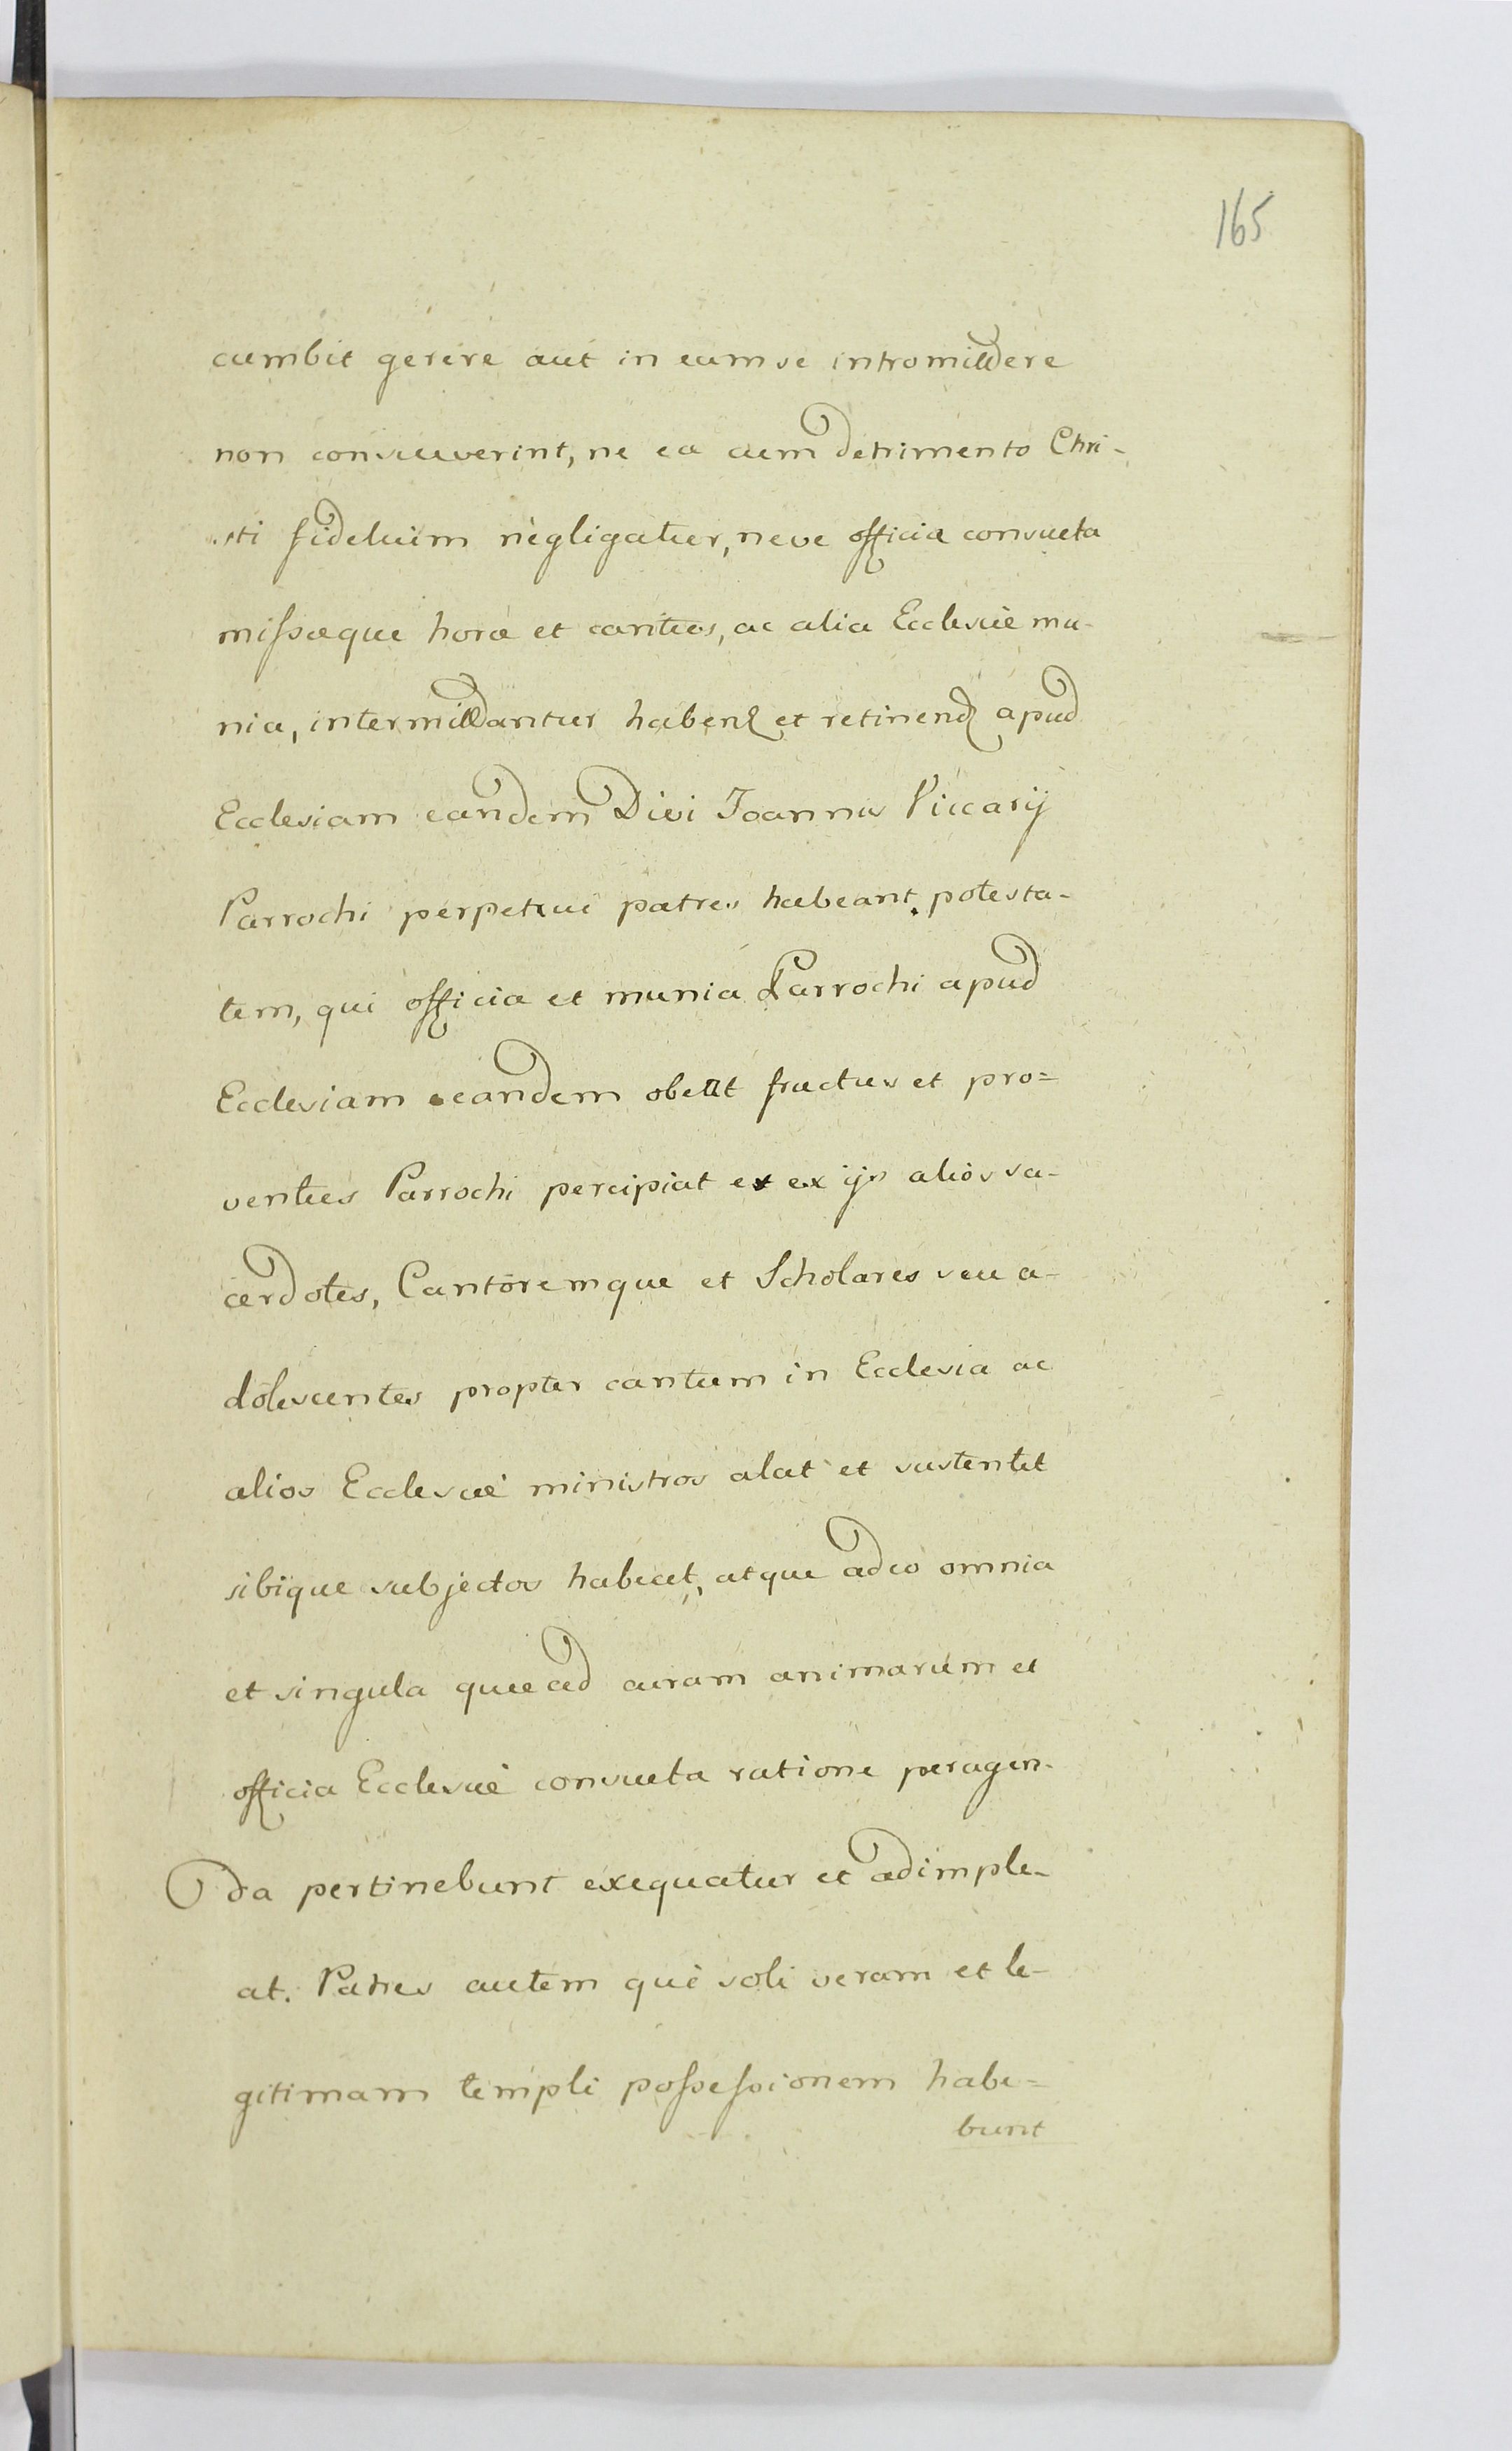 165
cumbit gerere aut in eam se intromittere
non consueverint, ne ea cum detrimento Chri-
sti fidelium negligatur, neve officia consueta
missæque horæ et cantus, ac alia Ecclesiæ mu-
nia, intermittantur habend et retinend apud
Ecclesiam eandem Divi Joannis Viccarij
Parrochi perpetui patres habeant potesta-
tem, qui officia et munia Parrochi apud
Ecclesiam eandem obeat fructus et pro=
ventus Parrochi percipiat et ex ijs alios sa-
cerdotes, Cantoremque et Scholares seu a-
dolescentes propter cantum in Ecclesia ac
alios Ecclesiæ ministros alat et sustentet
sibique subjectos habeat, atque adeo omnia
et singula quæ ad curam animarum et
officia Ecclesiæ consueta ratione peragen-
da pertinebunt exequatur et adimple-
at. Patres autem qui soli veram et le-
gitimam templi possessionem habe=
bunt